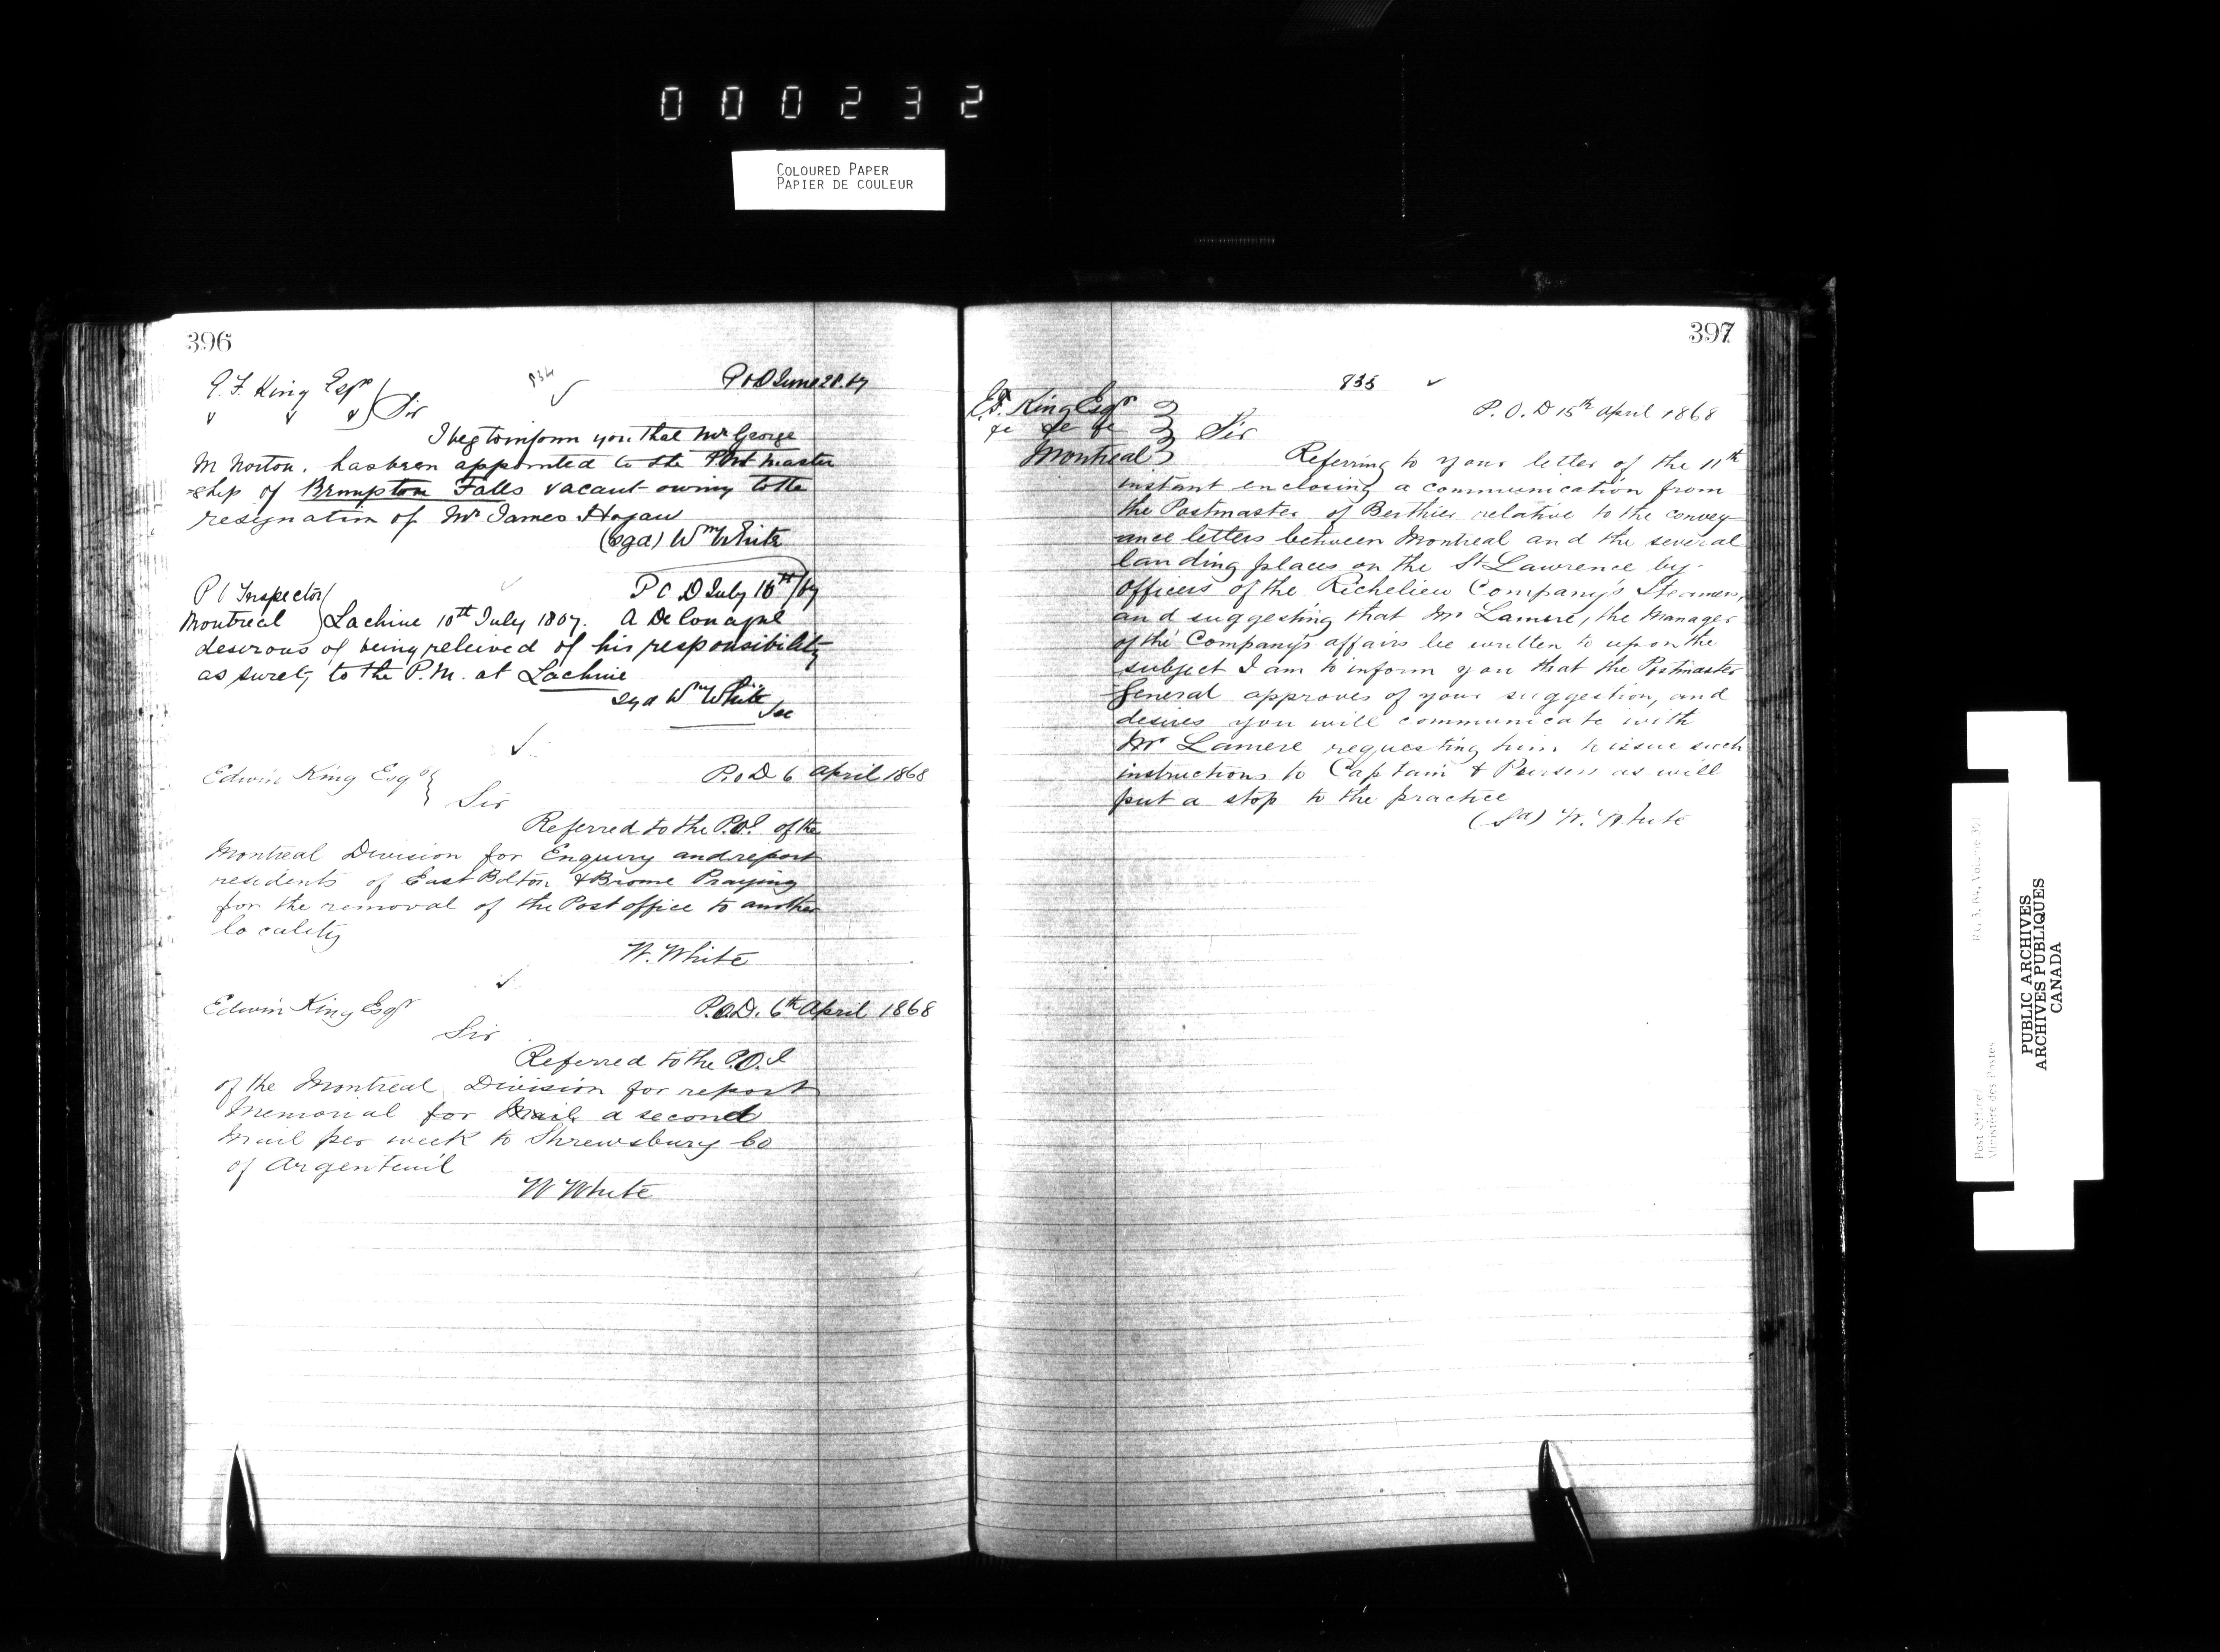 000232
COLOURED PAPER
PAPIER DE COULEUR
396
834
P.O.D June 28. 67
E. F. King Esqr
Sir
I beg to inform you that Mr George
M Norton. has been appointed to the Post Master
-ship of Brompton Falls vacant owing to the
resignation of Mr James Hogan
(Sgd) Wm White
P O D July 16th/67
P O Inspector
Montreal
Lachine 10th July 1867. A
desirous of being releived of his responsibility
as surety to the P.M. at Lachine
Sgd Wm White
Sec
Edwin King Esqr
P.O.D 6 April 1868
Sir
Referred to the P.O.I of the
Montreal Division for Enquiry and report
residents of East Bolton & Brome Praying
for the removal of the Post office to another
locality
W. White
Edwin King Esqr
P.O.D. 6th April 1868
Sir
Referred to the P.O.I
of the Montreal Division for report
Memorial for a second
Mail per week to Shrewsbury Co
of Argenteuil
W White
397
835
P. O. D 15th April 1868
E.F. King Esqr
&c &c &c
Montreal
Sir
Referring to your letter of the 11th
instant enclosing a communication from
the Postmaster of Berthier relative to the convey-
ance letters between Montreal and the several
landing places on the St Lawrence by-
officers of the Richelieu Company's Steamers,
and suggesting that Mr Lamere, the Manager
of the Company's affairs be written to upon the
subject I am to inform you that the Postmaster
General approves of your suggestion, and
desires you will communicate with
Mr Lamere requesting him to issue such
instructions to Captain & Pursers as will
put a stop to the practice
(Sd) W. White
Post Office/
Ministère des Postes
PUBLIC ARCHIVES
ARCHIVES PUBLIQUES
CANADA